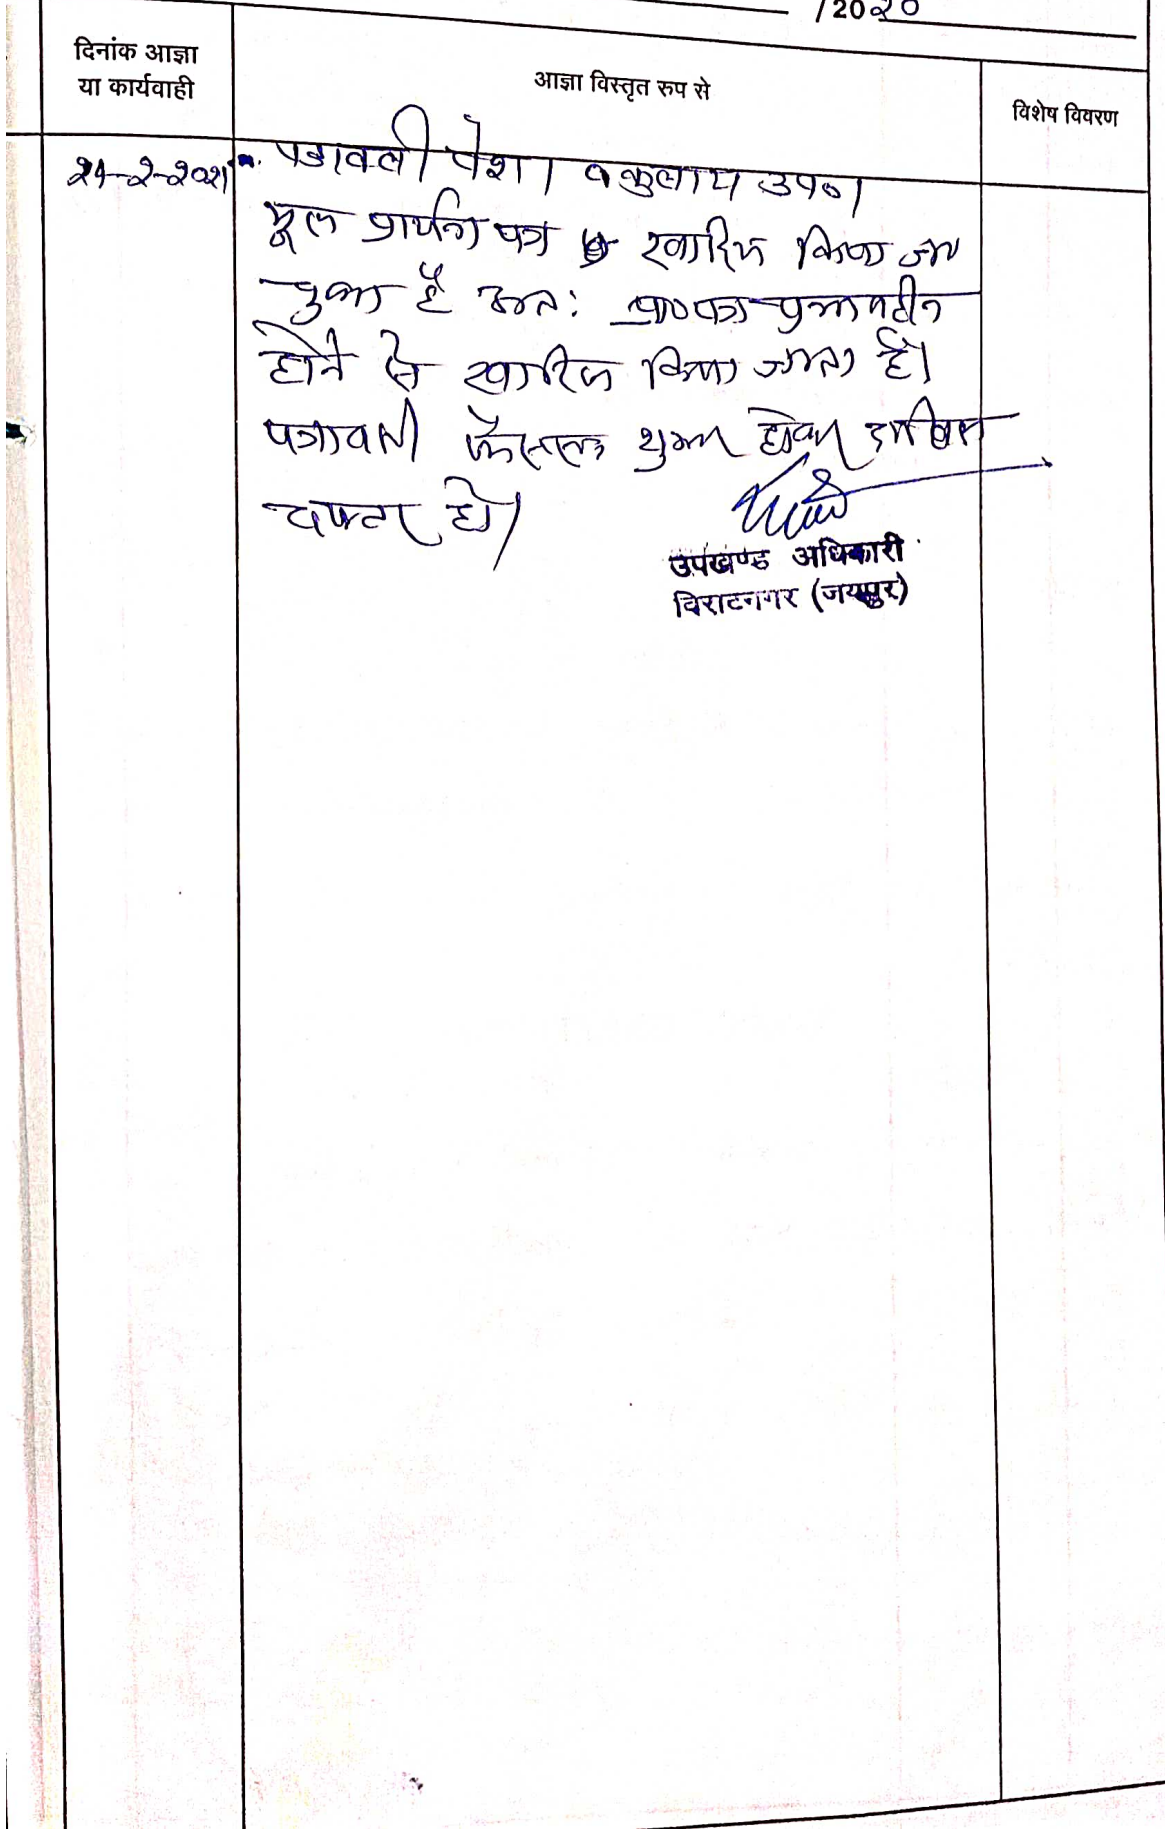 /20२०
दिनांक आज्ञा
या कार्यवाही
आज्ञा विस्तृत रुप से
विशेष विवरण
24-2-2021
पत्रावली पेश। वकुलाय उप०।
मूल प्रार्थना पत्र खारिज किया जा
चुका है अतः प्रा०पत्र
होने से खारिज किया जाता है।
पत्रावली फैसल शुमार होकर दाखिल
दफ्तर हो।
उपखण्ड अधिकारी
विराटनगर (जयपुर)